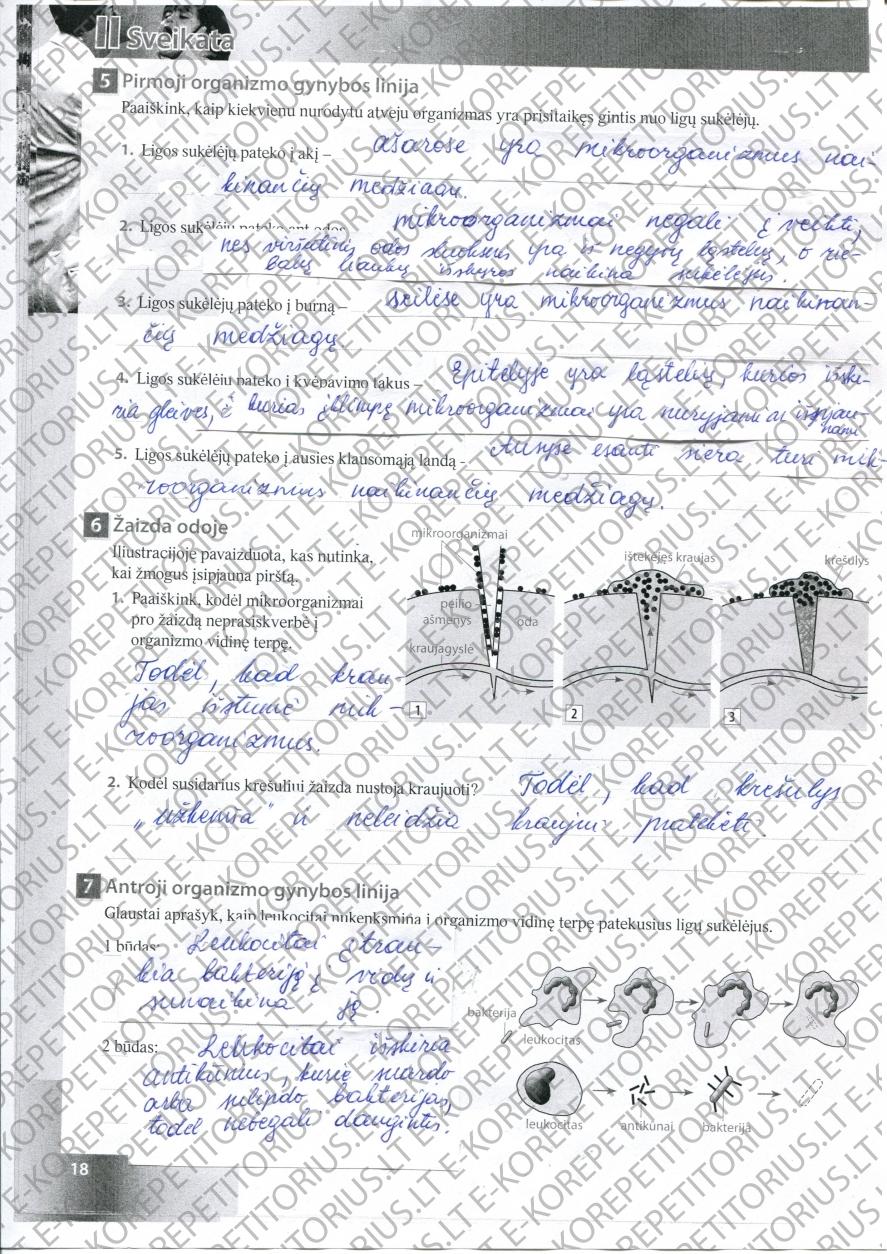 II Sveikata
5 Pirmoji organizmo gynybos linija
Paaiškink, kaip kiekvienu nurodytu atveju organizmas yra prisitaikęs gintis nuo ligų sukėlėjų.
1. Ligos sukėlėjų pateko į akį – ašarose yra mikroorganizmus nai-
kinančių medžiagų.
2. Ligos sukėlėjų pateko ant odos mikroorganizmai negali įveikti,
nes viršutinis odos sluoksnis yra iš negyvų ląstelių, o rie-
balų liaukų išskyros naikina sukėlėjus.
3. Ligos sukėlėjų pateko į burną – seilėse yra mikroorganizmus naikinan-
čių medžiagų.
4. Ligos sukėlėjų pateko į kvėpavimo takus – Epitelyje yra ląstelių, kurios išski-
ria gleives, į kurias įklimpę mikroorganizmai yra nuryjami ar išspjau-
nami
5. Ligos sukėlėjų pateko į ausies klausomąją landą – Ausyse esanti siera turi mik-
roorganizmus naikinančių medžiagų.
6 Žaizda odoje
Iliustracijoje pavaizduota, kas nutinka,
kai žmogus įsipjauna pirštą.
1. Paaiškink, kodėl mikroorganizmai
pro žaizdą neprasiskverbė į
organizmo vidinę terpę.
Todėl, kad krau-
jas išstūmė mik-
roorganizmus.
mikroorganizmai
peilio
ašmenys
oda
kraujagyslė
1
ištekėjęs kraujas
2
krešulys
3
2. Kodėl susidarius krešuliui žaizda nustoja kraujuoti? Todėl, kad krešulys
„užkemša" ir neleidžia kraujui pratekėti.
7 Antroji organizmo gynybos linija
Glaustai aprašyk, kaip leukocitai nukenksmina į organizmo vidinę terpę patekusius ligų sukėlėjus.
1 būdas: Leukocitai įtrau-
kia bakteriją į vidų ir
sunaikina ją.
bakterija
leukocitas
2 būdas: Leukocitai išskiria
antikūnius, kurie suardo
arba sulipdo bakterijas,
todėl nebegali daugintis.
leukocitas
antikūnai
bakterija
18
E-KOREPETITORIUS.LT